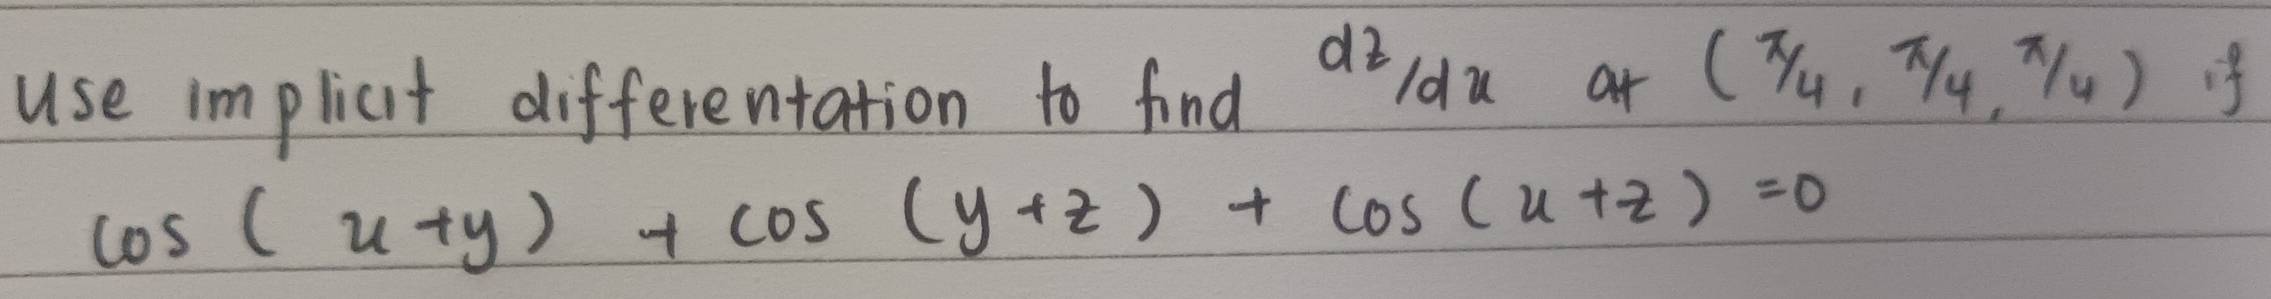 use implicit differentation to find dz/dx at (π/4, π/4, π/4) if
cos (x+y) + cos (y+z) + cos (x+z) =0